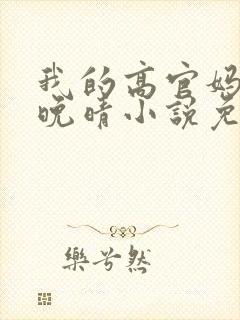 我的高官妈
晚晴小说免
乐兮然